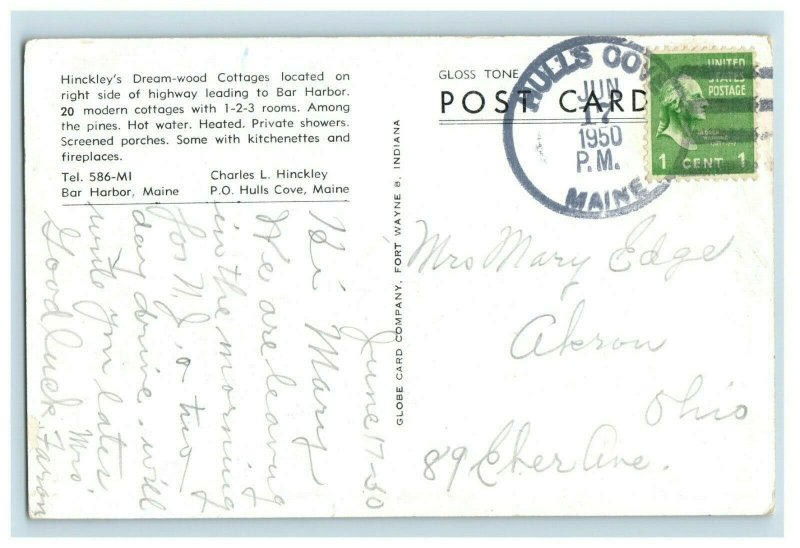 Hinckley's Dream-wood Cottages located on
right side of highway leading to Bar Harbor.
20 modern cottages with 1-2-3 rooms. Among
the pines. Hot water. Heated. Private showers.
Screened porches. Some with kitchenettes and
fireplaces.
Tel. 586-M1 Charles L. Hinckley
Bar Harbor, Maine P.O. Hulls Cove, Maine
June 17-50
Hi Mary
We are leaving
in the morning
for N.J., a two
day drive. will
write you later
Good luck, Mrs.
GLOBE CARD COMPANY, FORT WAYNE 8, INDIANA
GLOSS TONE
POST CARD
HULLS COV
JUN
17
1950
P.M.
MAINE
UNITED
STATES
POSTAGE
1 CENT 1
Mrs Mary Edge
Akron
Ohio
89 Eber Ave.